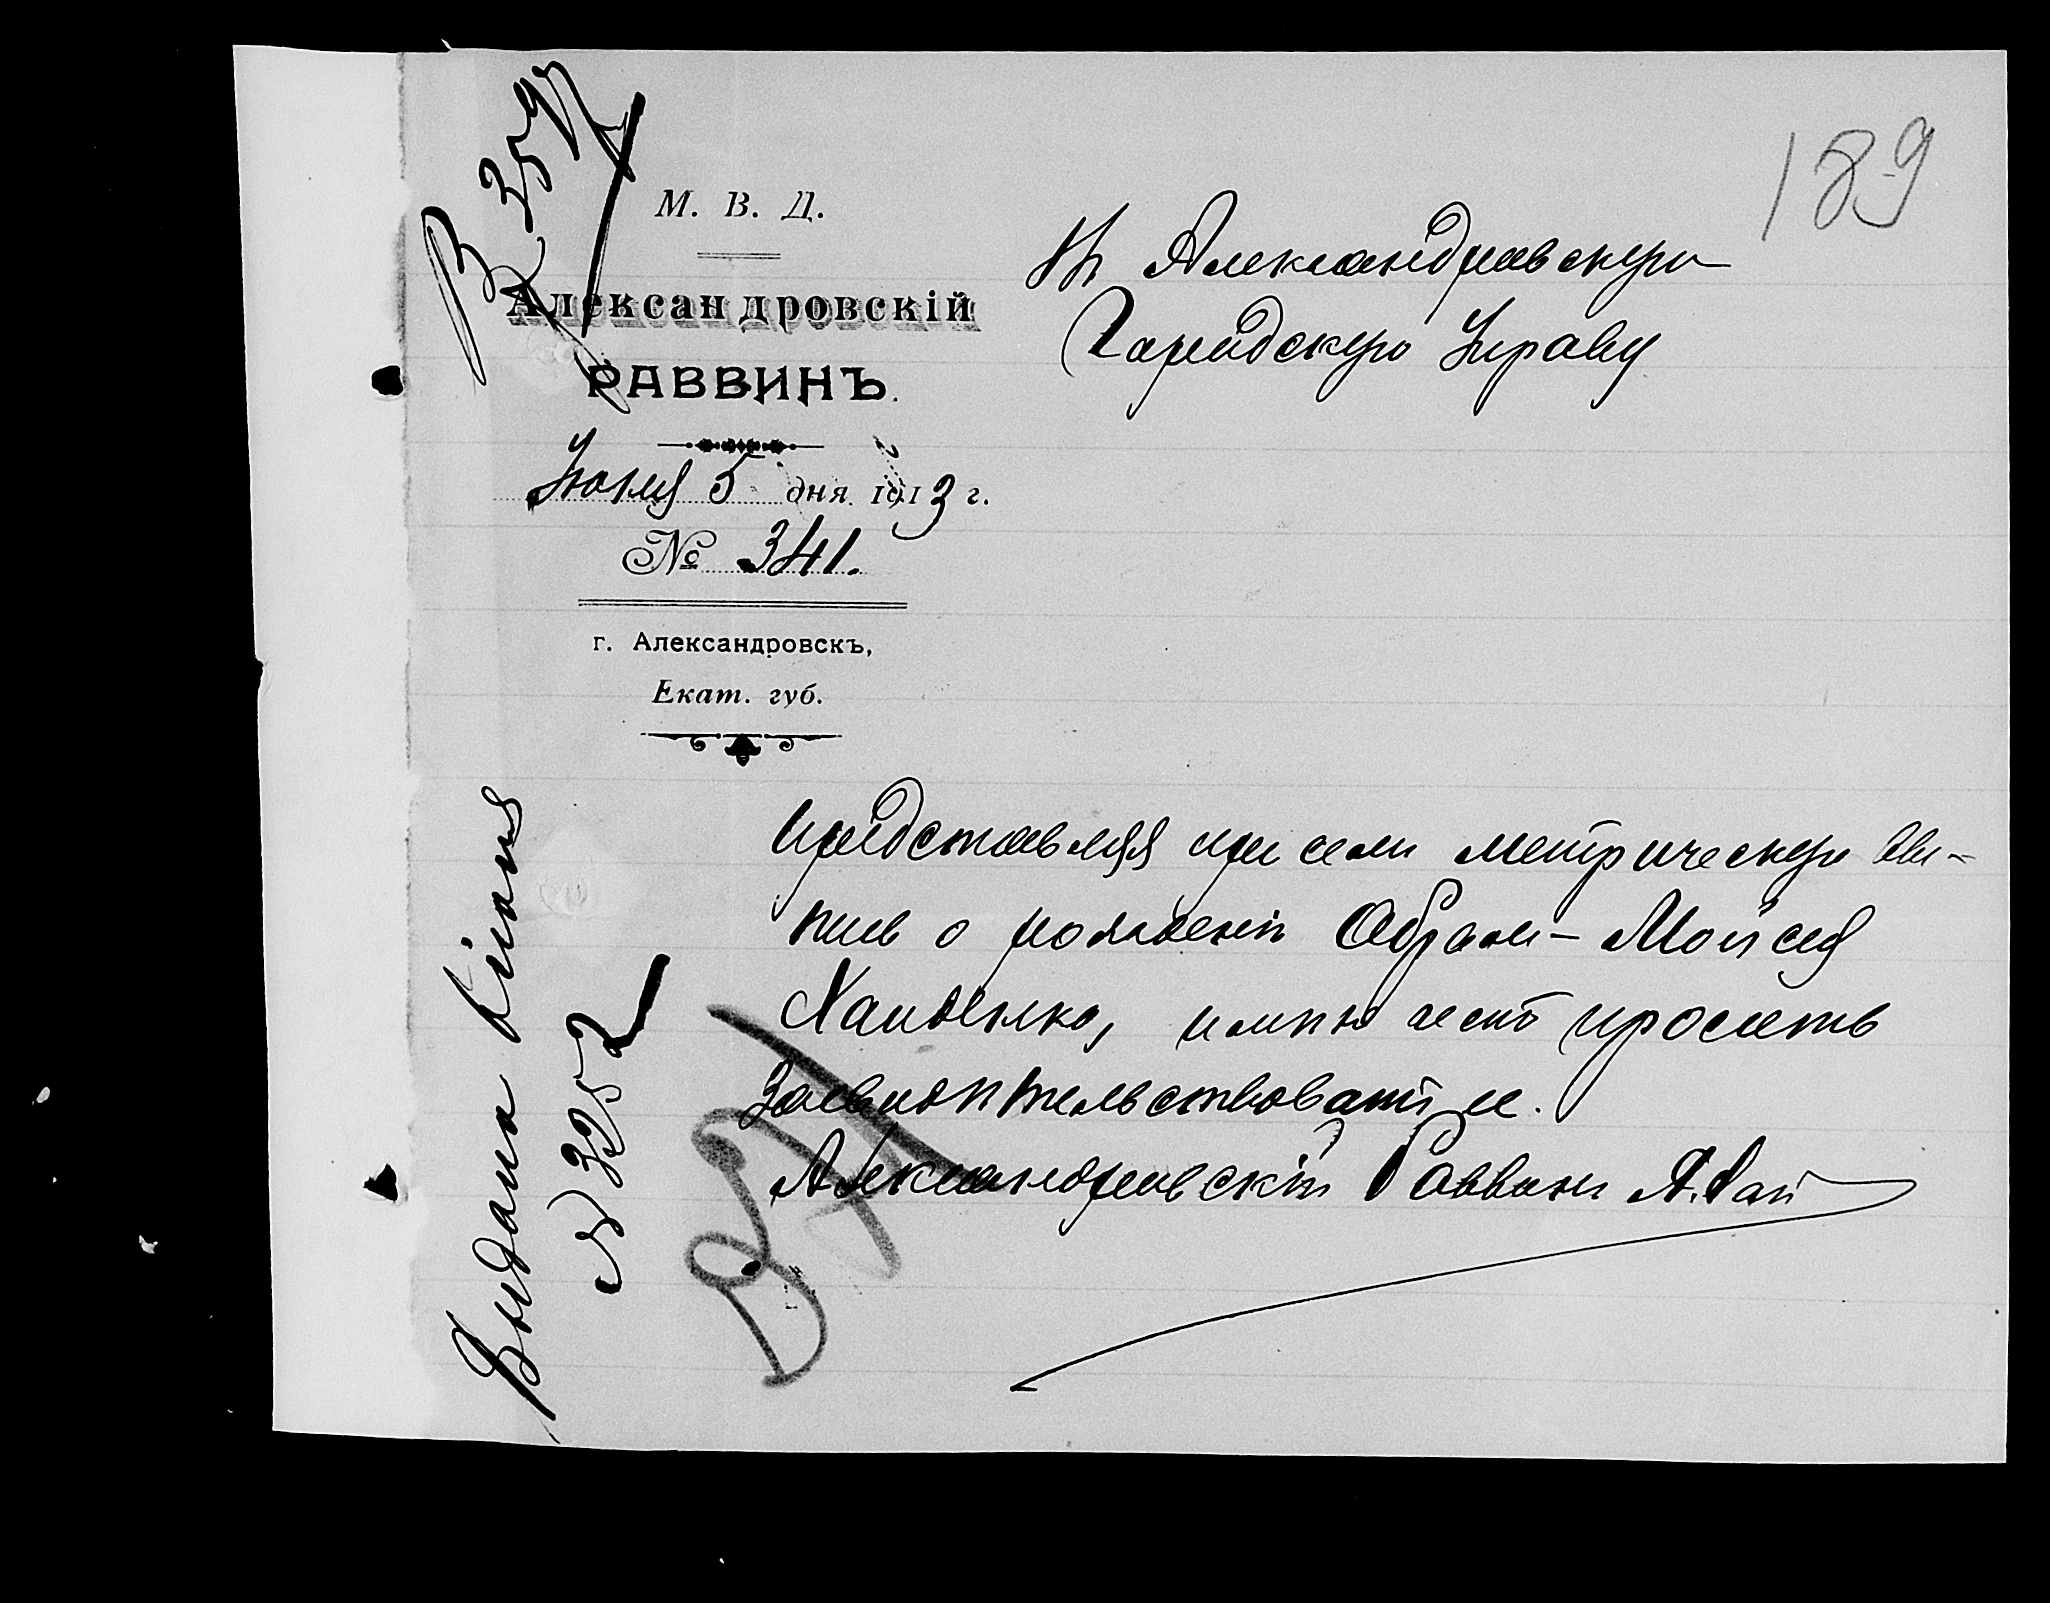 189
В 3597
М. В. Д.
Александровскій
РАВВИНЪ.
Іюня 5 дня 1913 г.
№ 341.
г. Александровскъ,
Екат. губ.
Въ Александровскую
Городскую Управу
Представляя при семъ метрическую вы-
пись о рожденіи Абрамъ-Мойсея
имѣю честь просить
засвидѣтельствовать ее.
Александровскій Раввинъ
Выдана
№ 3252